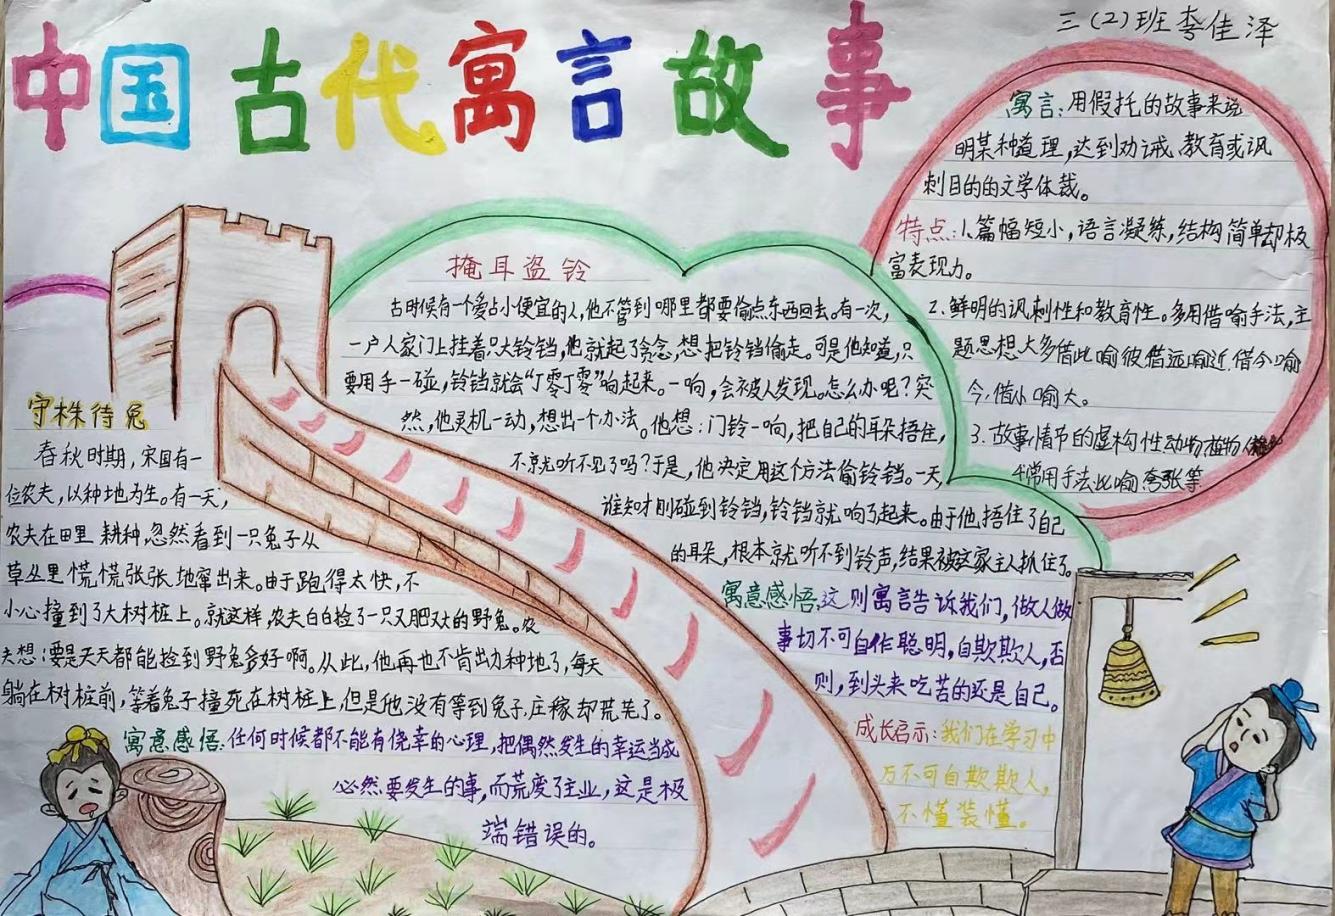 中国古代寓言故事
三(2)班李佳泽
寓言:用假托的故事来说
明某种道理,达到劝诫、教育或讽
刺目的的文学体裁。
特点:1、篇幅短小,语言凝练,结构简单却极
富表现力。
2.鲜明的讽刺性和教育性。多用借喻手法,主
题思想大多借此喻彼借远喻近、借今喻
今,借小喻大。
3.故事情节的虚构性动物植物
4常用手法比喻夸张等
掩耳盗铃
古时候有一个爱占小便宜的人,他不管到哪里都要偷点东西回去。有一次,
一户人家门上挂着只大铃铛,他就起了贪念,想把铃铛偷走。可是他知道,只
要用手一碰,铃铛就会“丁零丁零”响起来。一响,会被人发现。怎么办呢?突
然,他灵机一动,想出一个办法。他想:门铃一响,把自己的耳朵捂住,
不就听不见了吗?于是,他决定用这个方法偷铃铛。一天,
谁知才刚碰到铃铛,铃铛就响了起来。由于他捂住了自己
的耳朵,根本就听不到铃声,结果被这家主人抓住了。
寓意感悟:这则寓言告诉我们,做人做
事切不可自作聪明,自欺欺人,否
则,到头来吃苦的还是自己。
成长启示:我们在学习中
万不可自欺欺人,
不懂装懂。
守株待兔
春秋时期,宋国有一
位农夫,以种地为生。有一天,
农夫在田里耕种,忽然看到一只兔子从
草丛里慌慌张张地窜出来。由于跑得太快,不
小心撞到了大树桩上。就这样,农夫白白捡了一只又肥又大的野兔。农
夫想:要是天天都能捡到野兔多好啊。从此,他再也不肯出力种地了,每天
躺在树桩前,等着兔子撞死在树桩上,但是他没有等到兔子,庄稼却荒芜了。
寓意感悟:任何时候都不能有侥幸的心理,把偶然发生的幸运当成
必然要发生的事,而荒废了主业,这是极
端错误的。